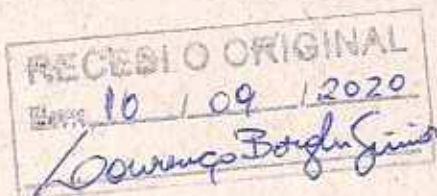 RECEBI O ORIGINAL
Em 10 / 09 / 2020
Lourenço Borghi Júnior